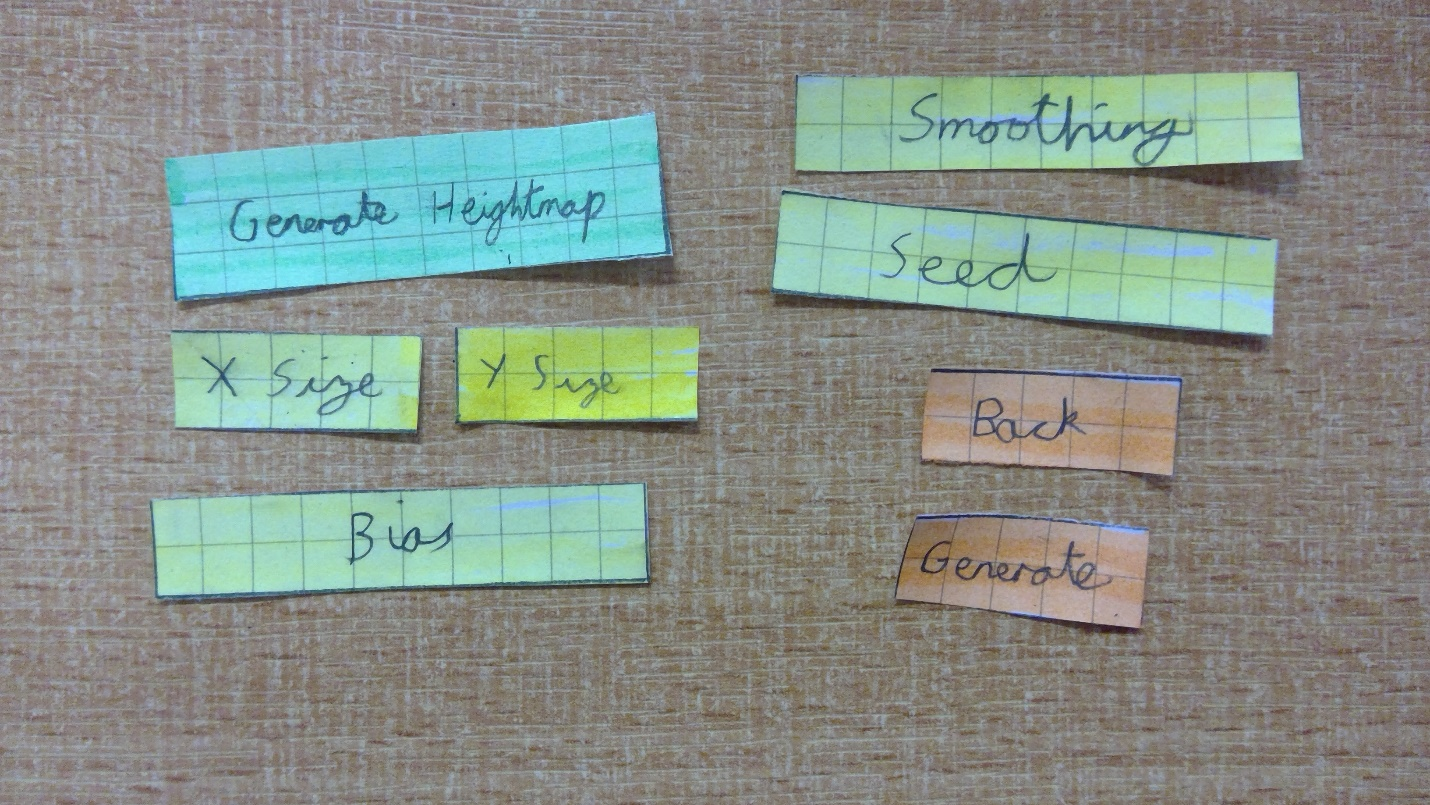 Generate Heightmap
X Size
Y Size
Bias
Smoothing
Seed
Back
Generate